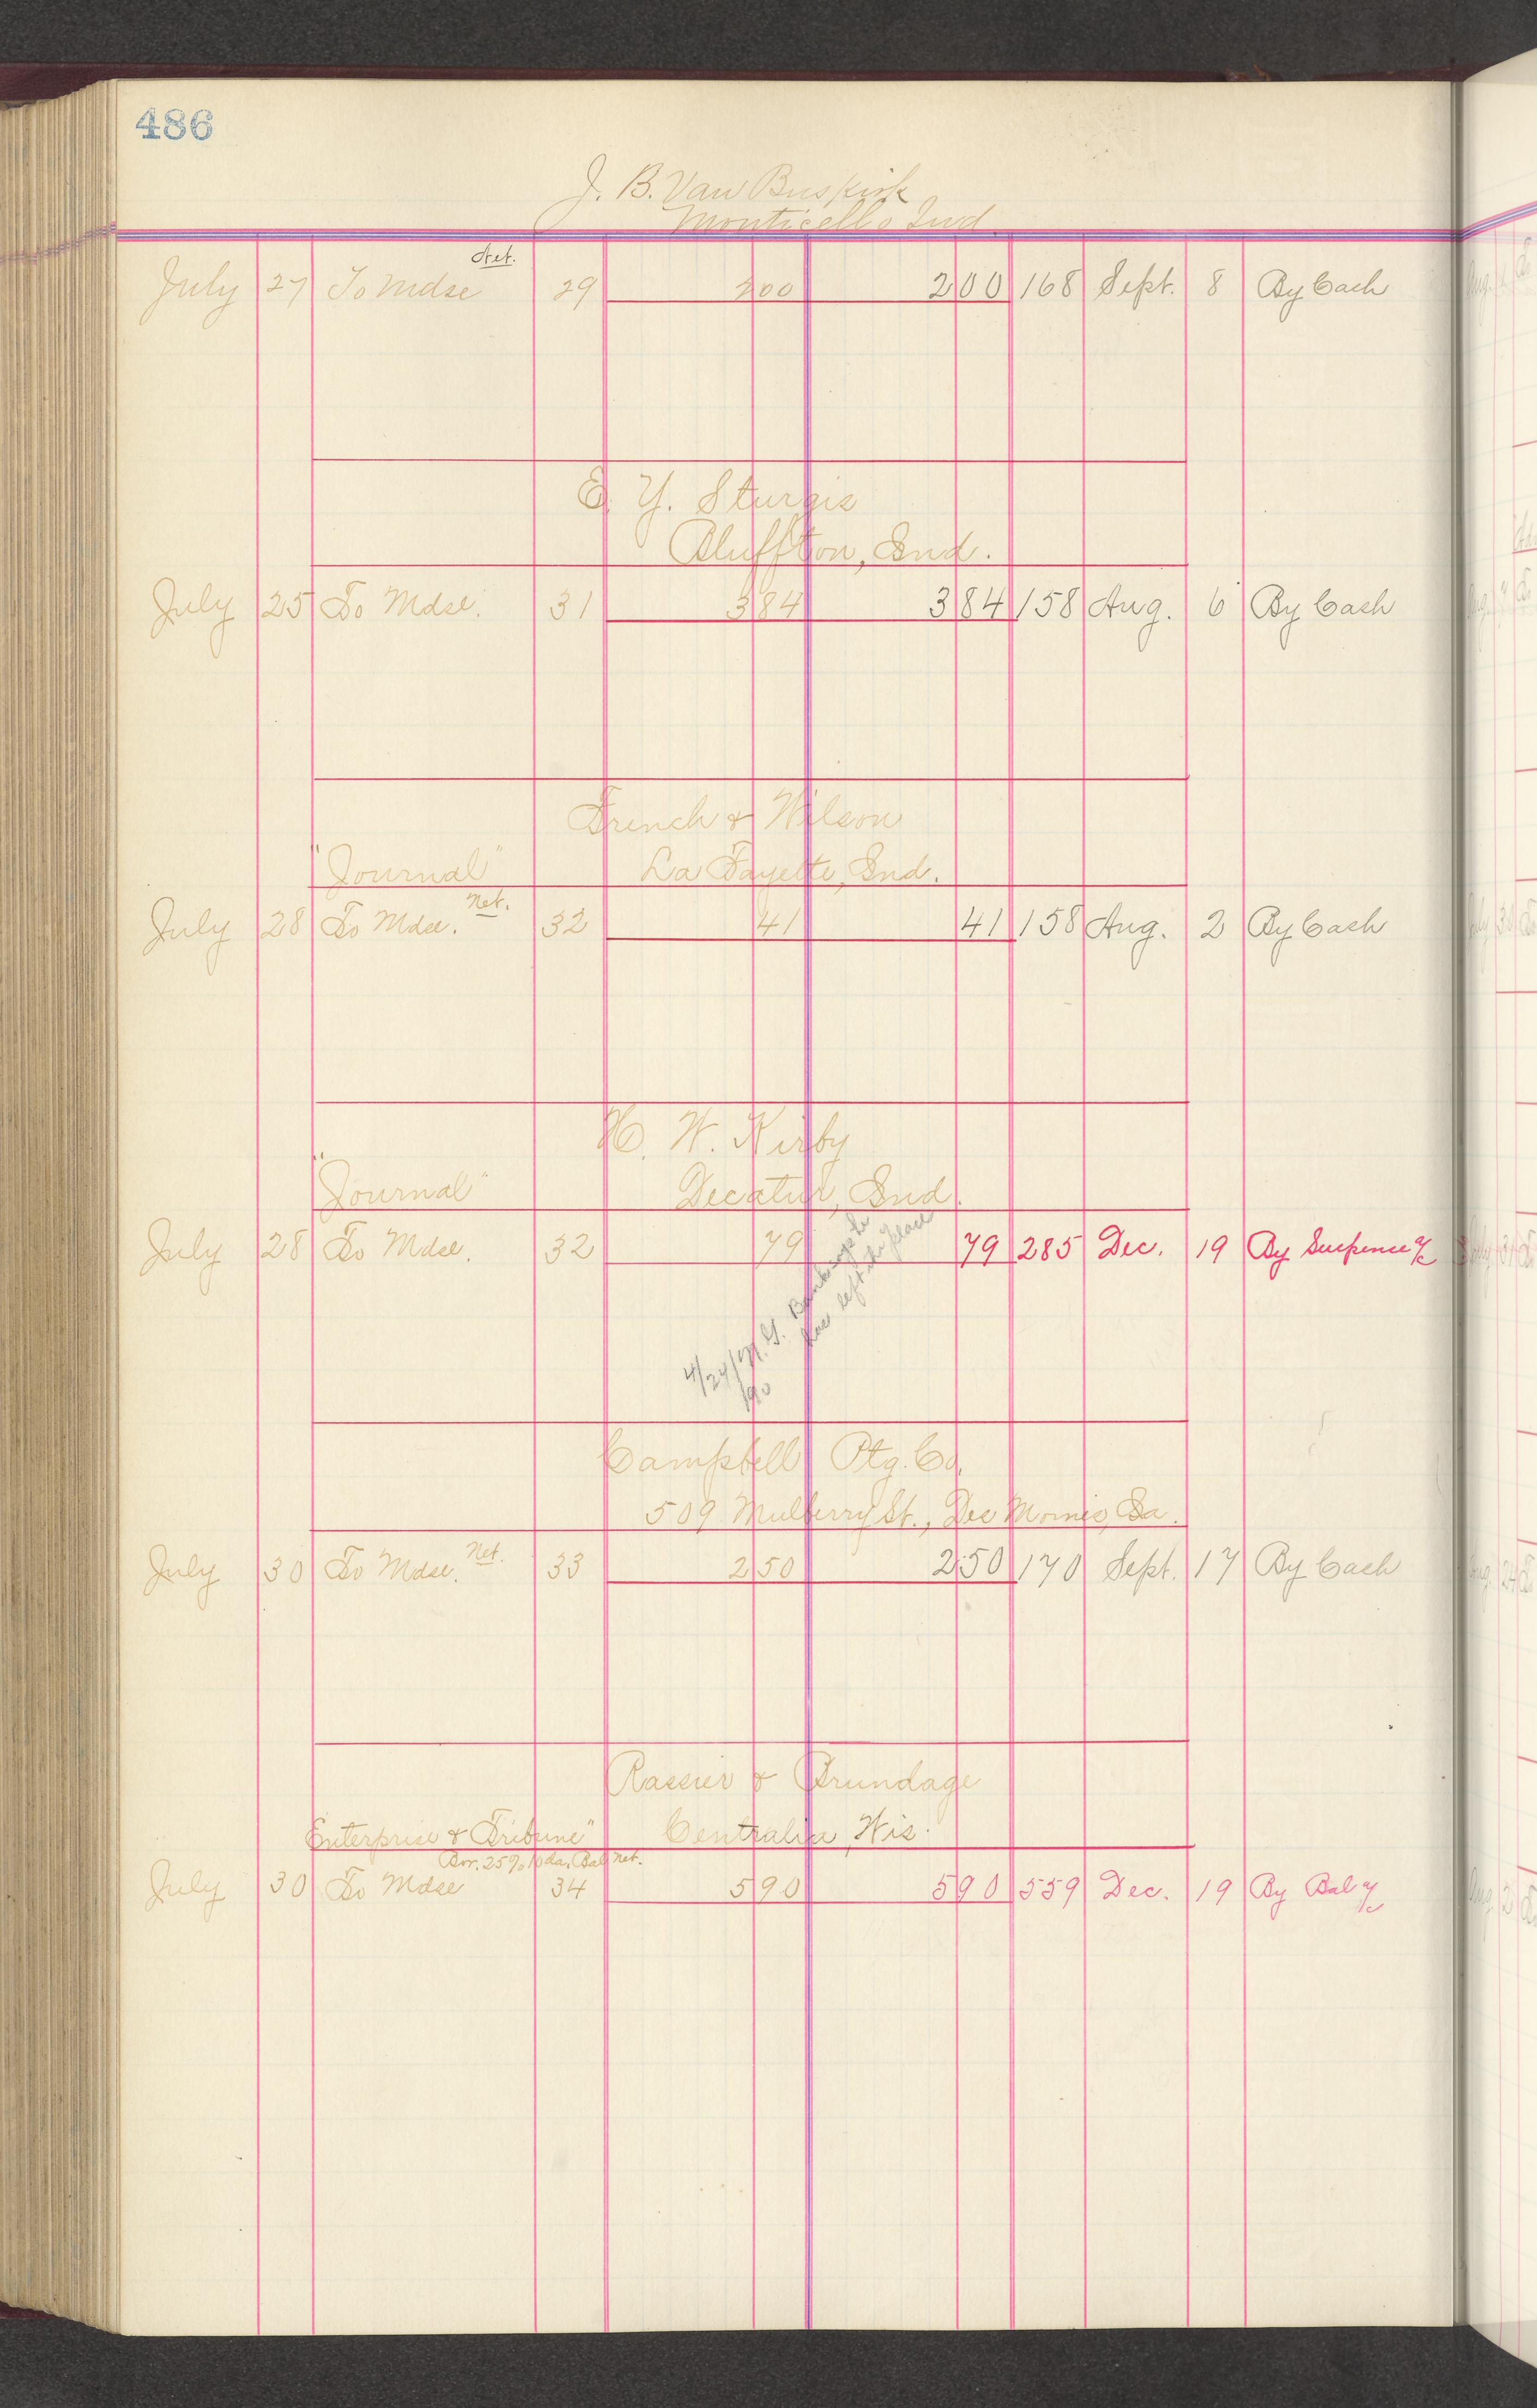 486
J. B. Van Buskirk
Monticello Ind
Net.
July 27 To Mdse 29 200 200 168 Sept. 8 By Cash
E. Y. Sturgis
Bluffton, Ind.
July 25 To Mdse. 31 384 384 158 Aug. 6 By Cash
French & Wilson
"Journal" La Fayette, Ind.
Net.
July 28 To Mdse. 32 41 41 158 Aug. 2 By Cash
H. W. Kirby
"Journal" Decatur, Ind.
July 28 To Mdse. 32 79 79 285 Dec. 19 By Suspense a/c
4/24/90 N.G. Bankrupt
has left the place
Campbell Ptg. Co.
509 Mulberry St., Des Moines, Ia.
Net.
July 30 To Mdse. 33 250 250 170 Sept. 17 By Cash
Rassier & Brundage
Enterprise & Tribune" Centralia, Wis.
25% 10 da. Bal Net.
July 30 To Mdse 34 590 590 559 Dec. 19 By Bal a/c